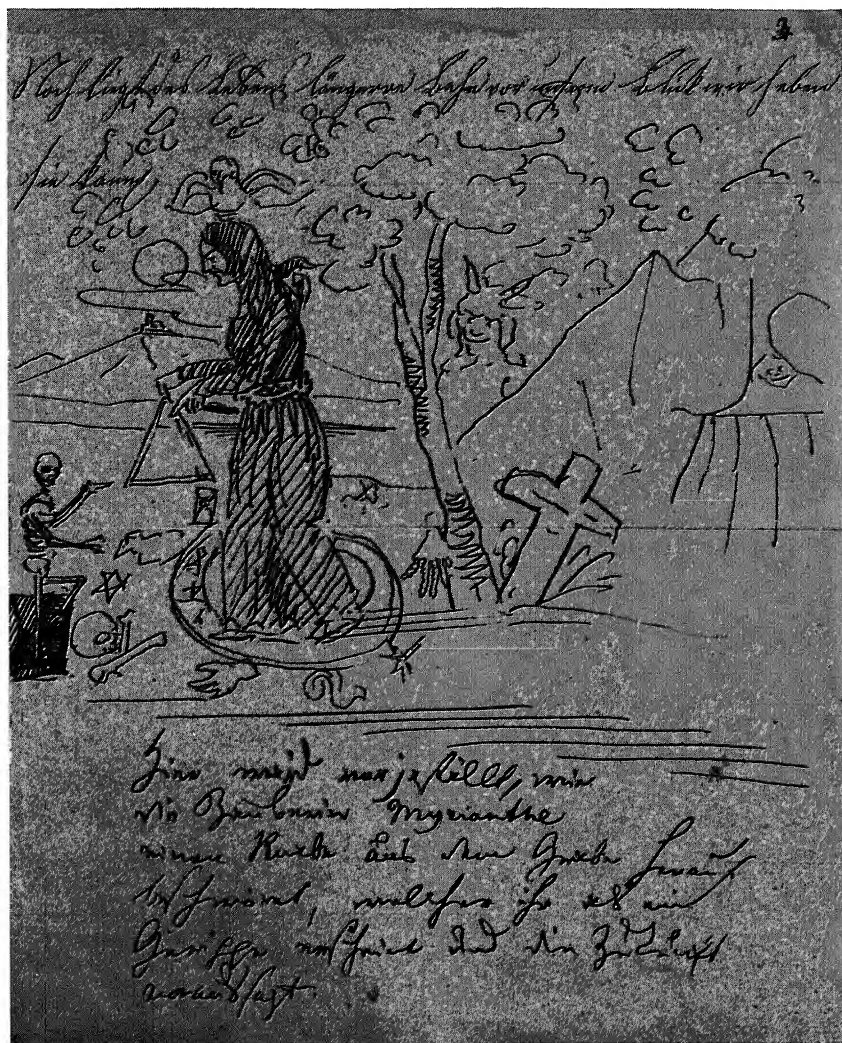 Noch liegt des Lebens längere Bahn vor unserm Blick wir haben
sie kaum,
Hier wird vorjestellt, wie
die Zauberin Myrianthe
einen Knabe aus dem Grabe herauf
beschwört, welcher ihr als ein
Gerippe erscheint und die Zukunft
voraussagt.